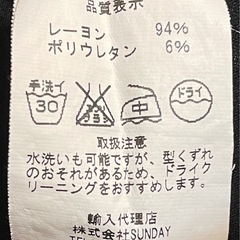 品質表示
レーヨン 94%
ポリウレタン 6%
手洗イ 30 中 ドライ
取扱注意
水洗いも可能ですが、型くずれ
のおそれがあるため、ドライク
リーニングをおすすめします。
輸入代理店
株式会社SUNDAY